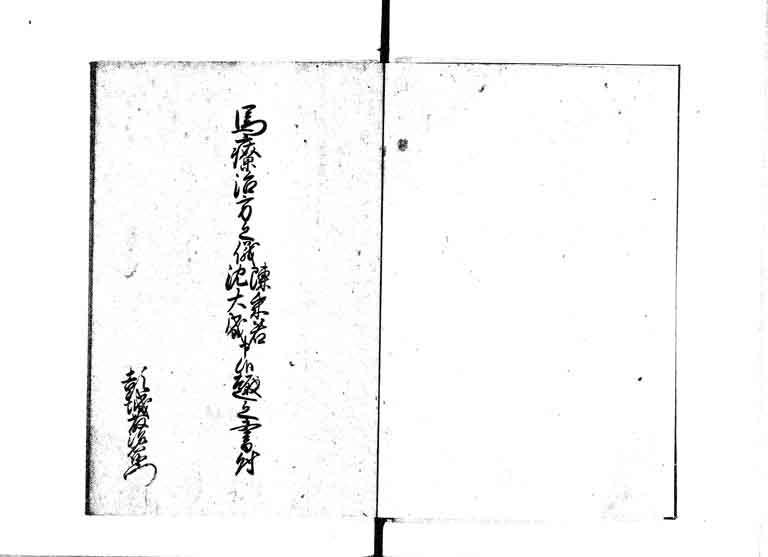 馬療治方之儀陳采若沈大成申候趣之書付
彭城治右衛門